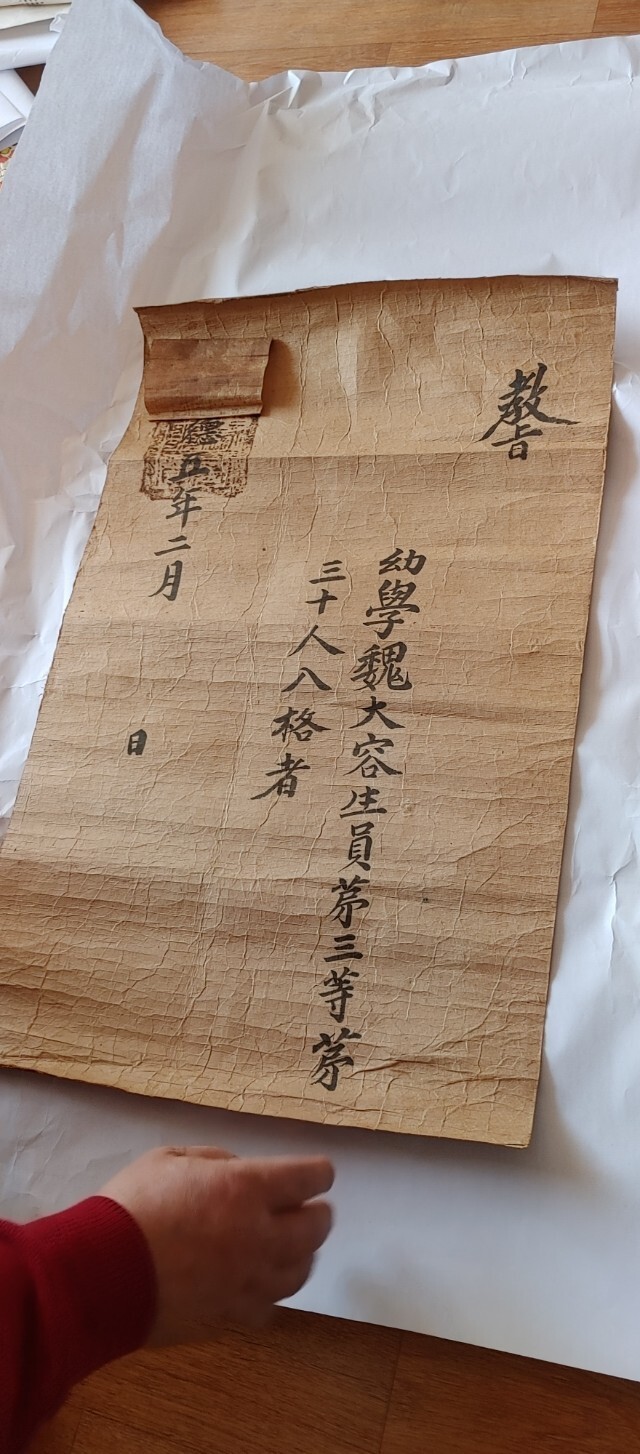 教旨
幼學魏大容生員苐三等苐
三十人入格者
德五年二月 日